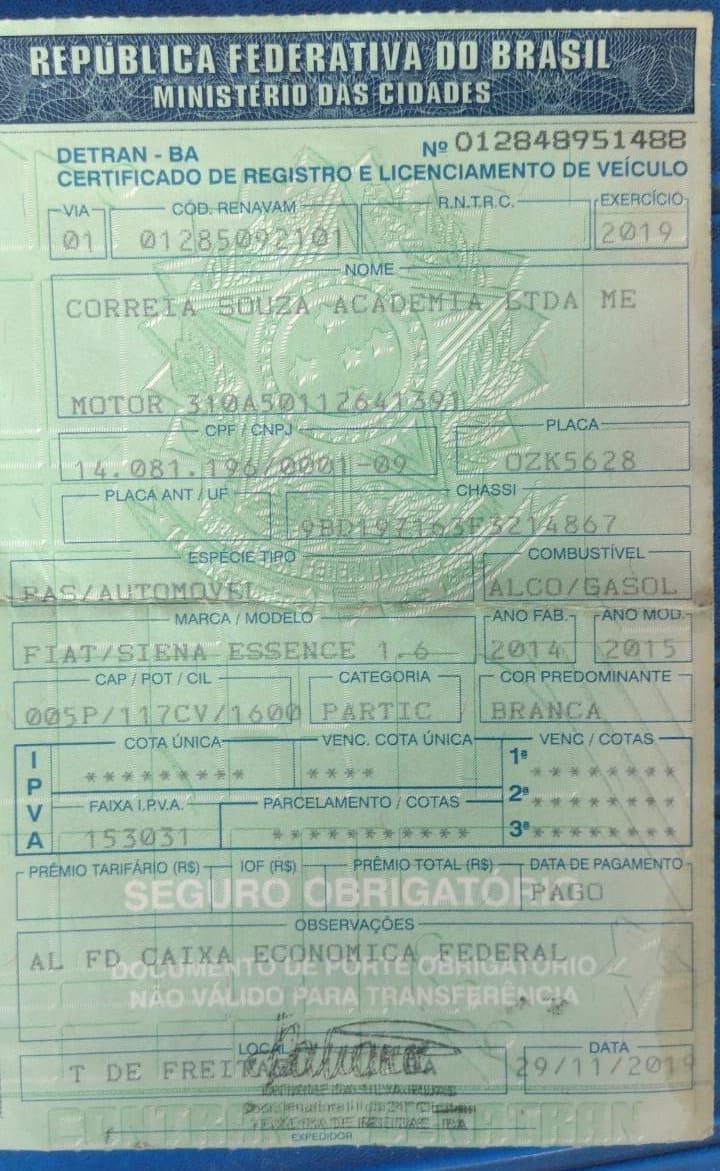 REPÚBLICA FEDERATIVA DO BRASIL
MINISTÉRIO DAS CIDADES
DETRAN - BA Nº 012848951488
CERTIFICADO DE REGISTRO E LICENCIAMENTO DE VEÍCULO
VIA CÓD. RENAVAM R.N.T.R.C. EXERCÍCIO
01 01285092101 2019
NOME
CORREIA SOUZA ACADEMIA LTDA ME
MOTOR 310A50112641391
CPF / CNPJ PLACA
14.081.196/0001-09 OZK5628
PLACA ANT / UF CHASSI
9BD197163F3214867
ESPÉCIE TIPO COMBUSTÍVEL
PAS/AUTOMOVEL ALCO/GASOL
MARCA / MODELO ANO FAB. ANO MOD.
FIAT/SIENA ESSENCE 1.6 2014 2015
CAP / POT / CIL CATEGORIA COR PREDOMINANTE
005P/117CV/1600 PARTIC BRANCA
IPVA
COTA ÚNICA VENC. COTA ÚNICA VENC / COTAS
********* **** 1ª *********
FAIXA I.P.V.A. PARCELAMENTO / COTAS 2ª *********
153031 ********** 3ª *********
PRÊMIO TARIFÁRIO (R$) IOF (R$) PRÊMIO TOTAL (R$) DATA DE PAGAMENTO
SEGURO OBRIGATÓRIO PAGO
OBSERVAÇÕES
AL FD CAIXA ECONOMICA FEDERAL
DOCUMENTO DE PORTE OBRIGATÓRIO
NÃO VÁLIDO PARA TRANSFERÊNCIA
LOCAL DATA
T DE FREITAS BA 29/11/2019
TEIXEIRA DE FREITAS BA
CONTRAN DENATRAN
EXPEDIDOR